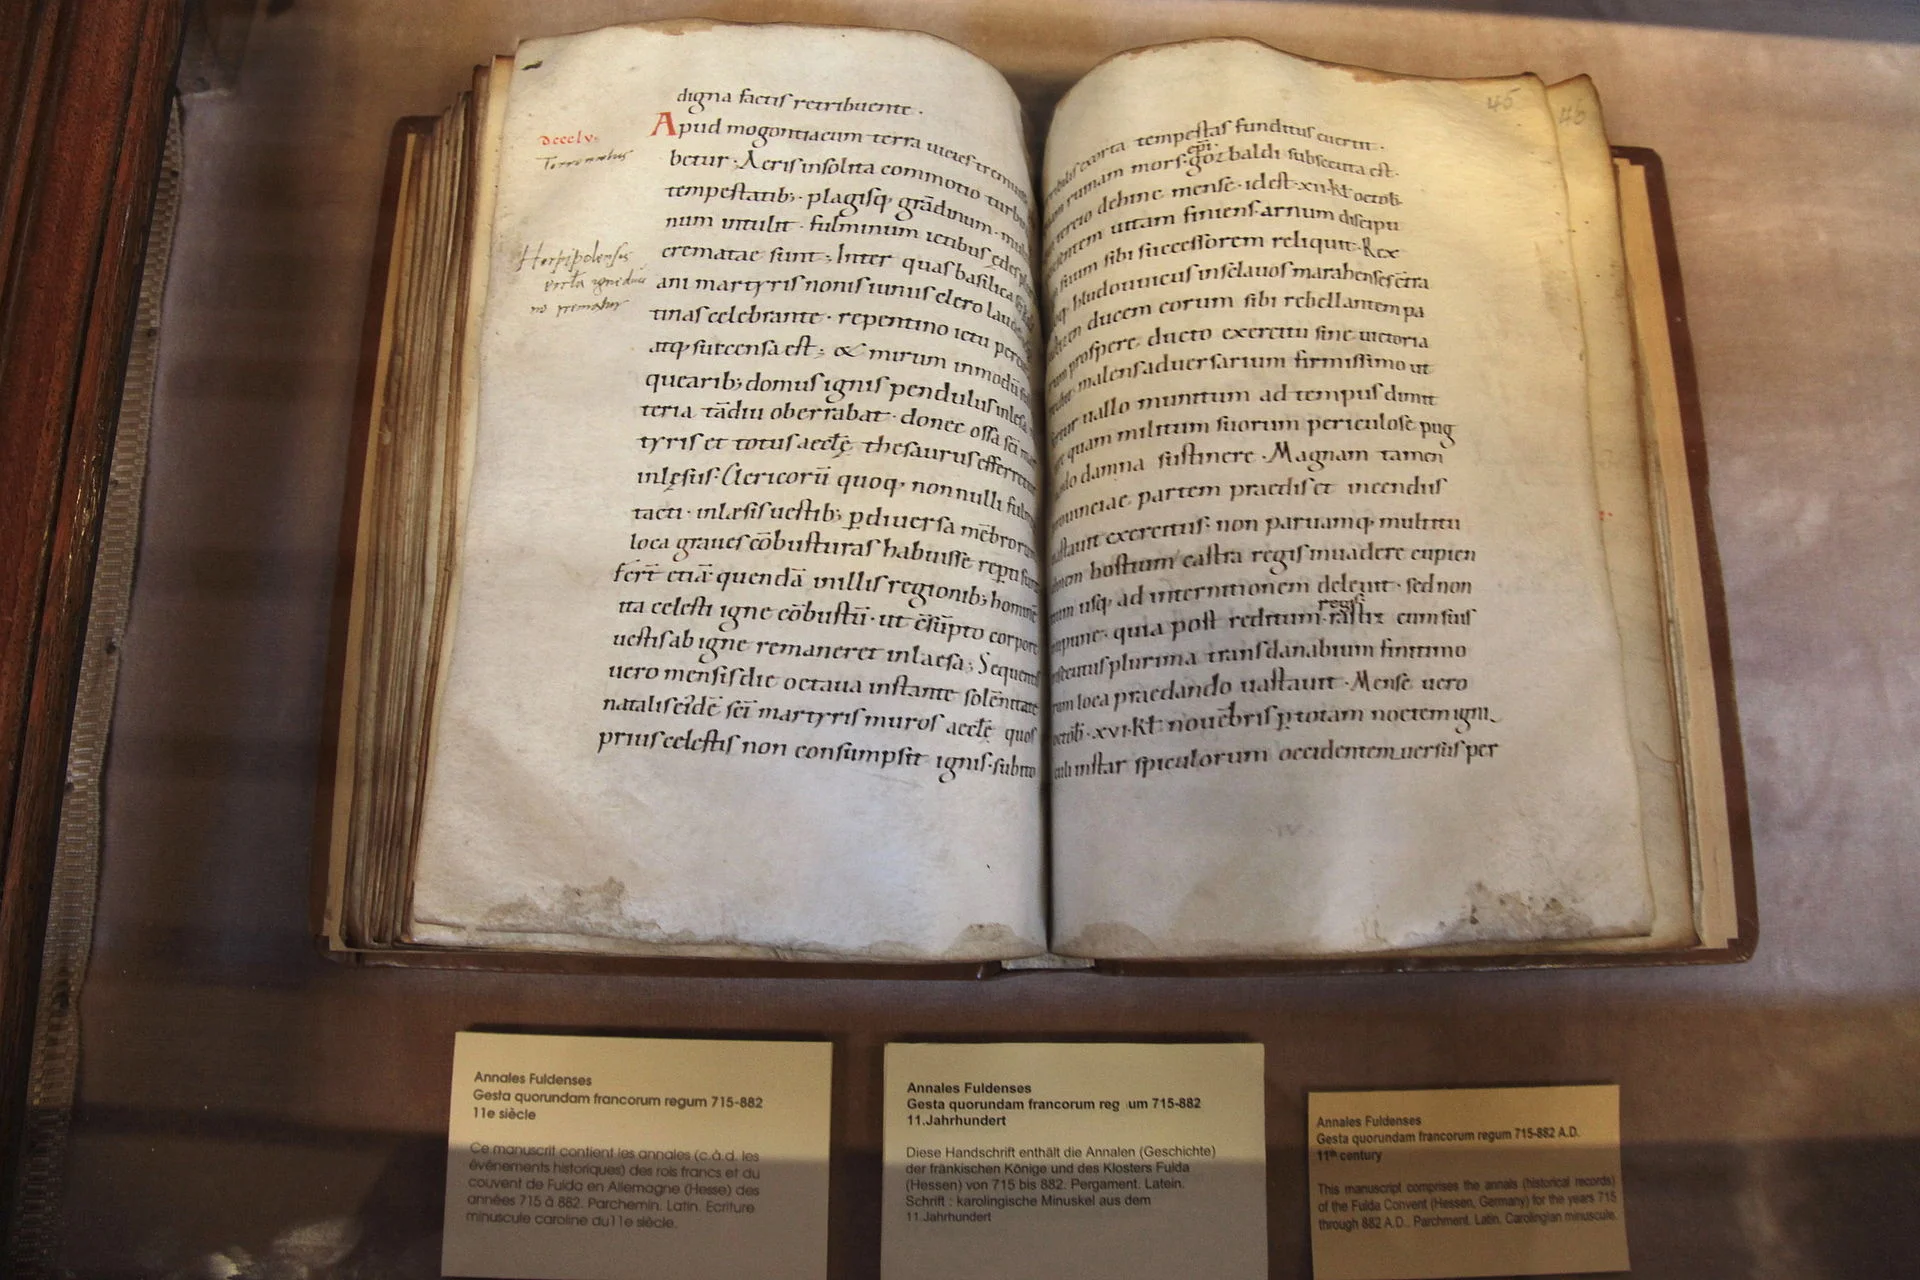 digna factis retribuente .
dccclv.
Apud mogontiacum terra vicies tremu
Terremotus
betur . Aeris insolita commotio turbi
tempestatib; . plagisq; grādinum . mul
num intulit . fulminum ictibus ędes
Herbipolensis
crematae sunt ; Inter quas basilica
ani martyris nonis iunii clero laudes
tinas celebrante . repentino ictu
atq; succensa est ; & mirum inmodū
quearib; domus ignis pendulus inlesa
teria tādiu oberrabat . donec ossa sc̄i mar
tyris et totus aecl̄ę thesaurus efferretur
inlęsus . Clericorū quoq; nonnulli fulm
tacti . inlaesis vestib; ꝑ diversa mēbrorum
loca graves cōbusturas habuisse reperti sunt
fert̄ etiā quendā in illis regionib; hominē
ita celesti igne cōbustū . ut cōsūpto corpore
vestis ab igne remaneret inlaesa ; Sequentis
vero mensis die octava instante solēnitate
natalis eidē sc̄i martyris muros aecl̄ę quos
prius celestis non consumpsit ignis . subito
45
46
exorta tempestas funditus evertit .
epi
ruinam mors gozbaldi subsecuta est .
tercio dehinc mense . id est . xii . kł octob̄
vitam finiens arnum discipu
suum sibi successorem reliquit . Rex
hludouuicus in sclavos marahenses c̄tra
ducem eorum sibi rebellantem pa
prospere ducto exercitu sine victoria
malens adversarium firmissimo ut
vallo munitum ad tempus dimit
quam militum suorum periculose pug
damna sustinere . Magnam tamen
provinciae partem praedis et incendiis
vastavit exercitus . non parvamq; multitu
hostium castra regis invadere cupien
usq; ad internitionem delevit . sed non
regis
inpune . quia post reditum rastiz cum suis
insecutus plurima trans danubium finitimo
rum loca praedando vastavit . Mense vero
octob̄ . xvi . kł novēbris ꝑ totam noctem igni
culi instar spiculorum occidentem versus per
Annales Fuldenses
Gesta quorundam francorum regum 715-882
11e siècle
Ce manuscrit contient les annales (c.à.d. les
événements historiques) des rois francs et du
couvent de Fulda en Allemagne (Hesse) des
années 715 à 882. Parchemin. Latin. Ecriture
minuscule caroline du11e siècle.
Annales Fuldenses
Gesta quorundam francorum reg um 715-882
11.Jahrhundert
Diese Handschrift enthält die Annalen (Geschichte)
der fränkischen Könige und des Klosters Fulda
(Hessen) von 715 bis 882. Pergament. Latein.
Schrift : karolingische Minuskel aus dem
11.Jahrhundert
Annales Fuldenses
Gesta quorundam francorum regum 715-882 A.D.
11th century
This manuscript comprises the annals (historical records)
of the Fulda Convent (Hessen, Germany) for the years 715
through 882 A.D.. Parchment. Latin. Carolingian minuscule.